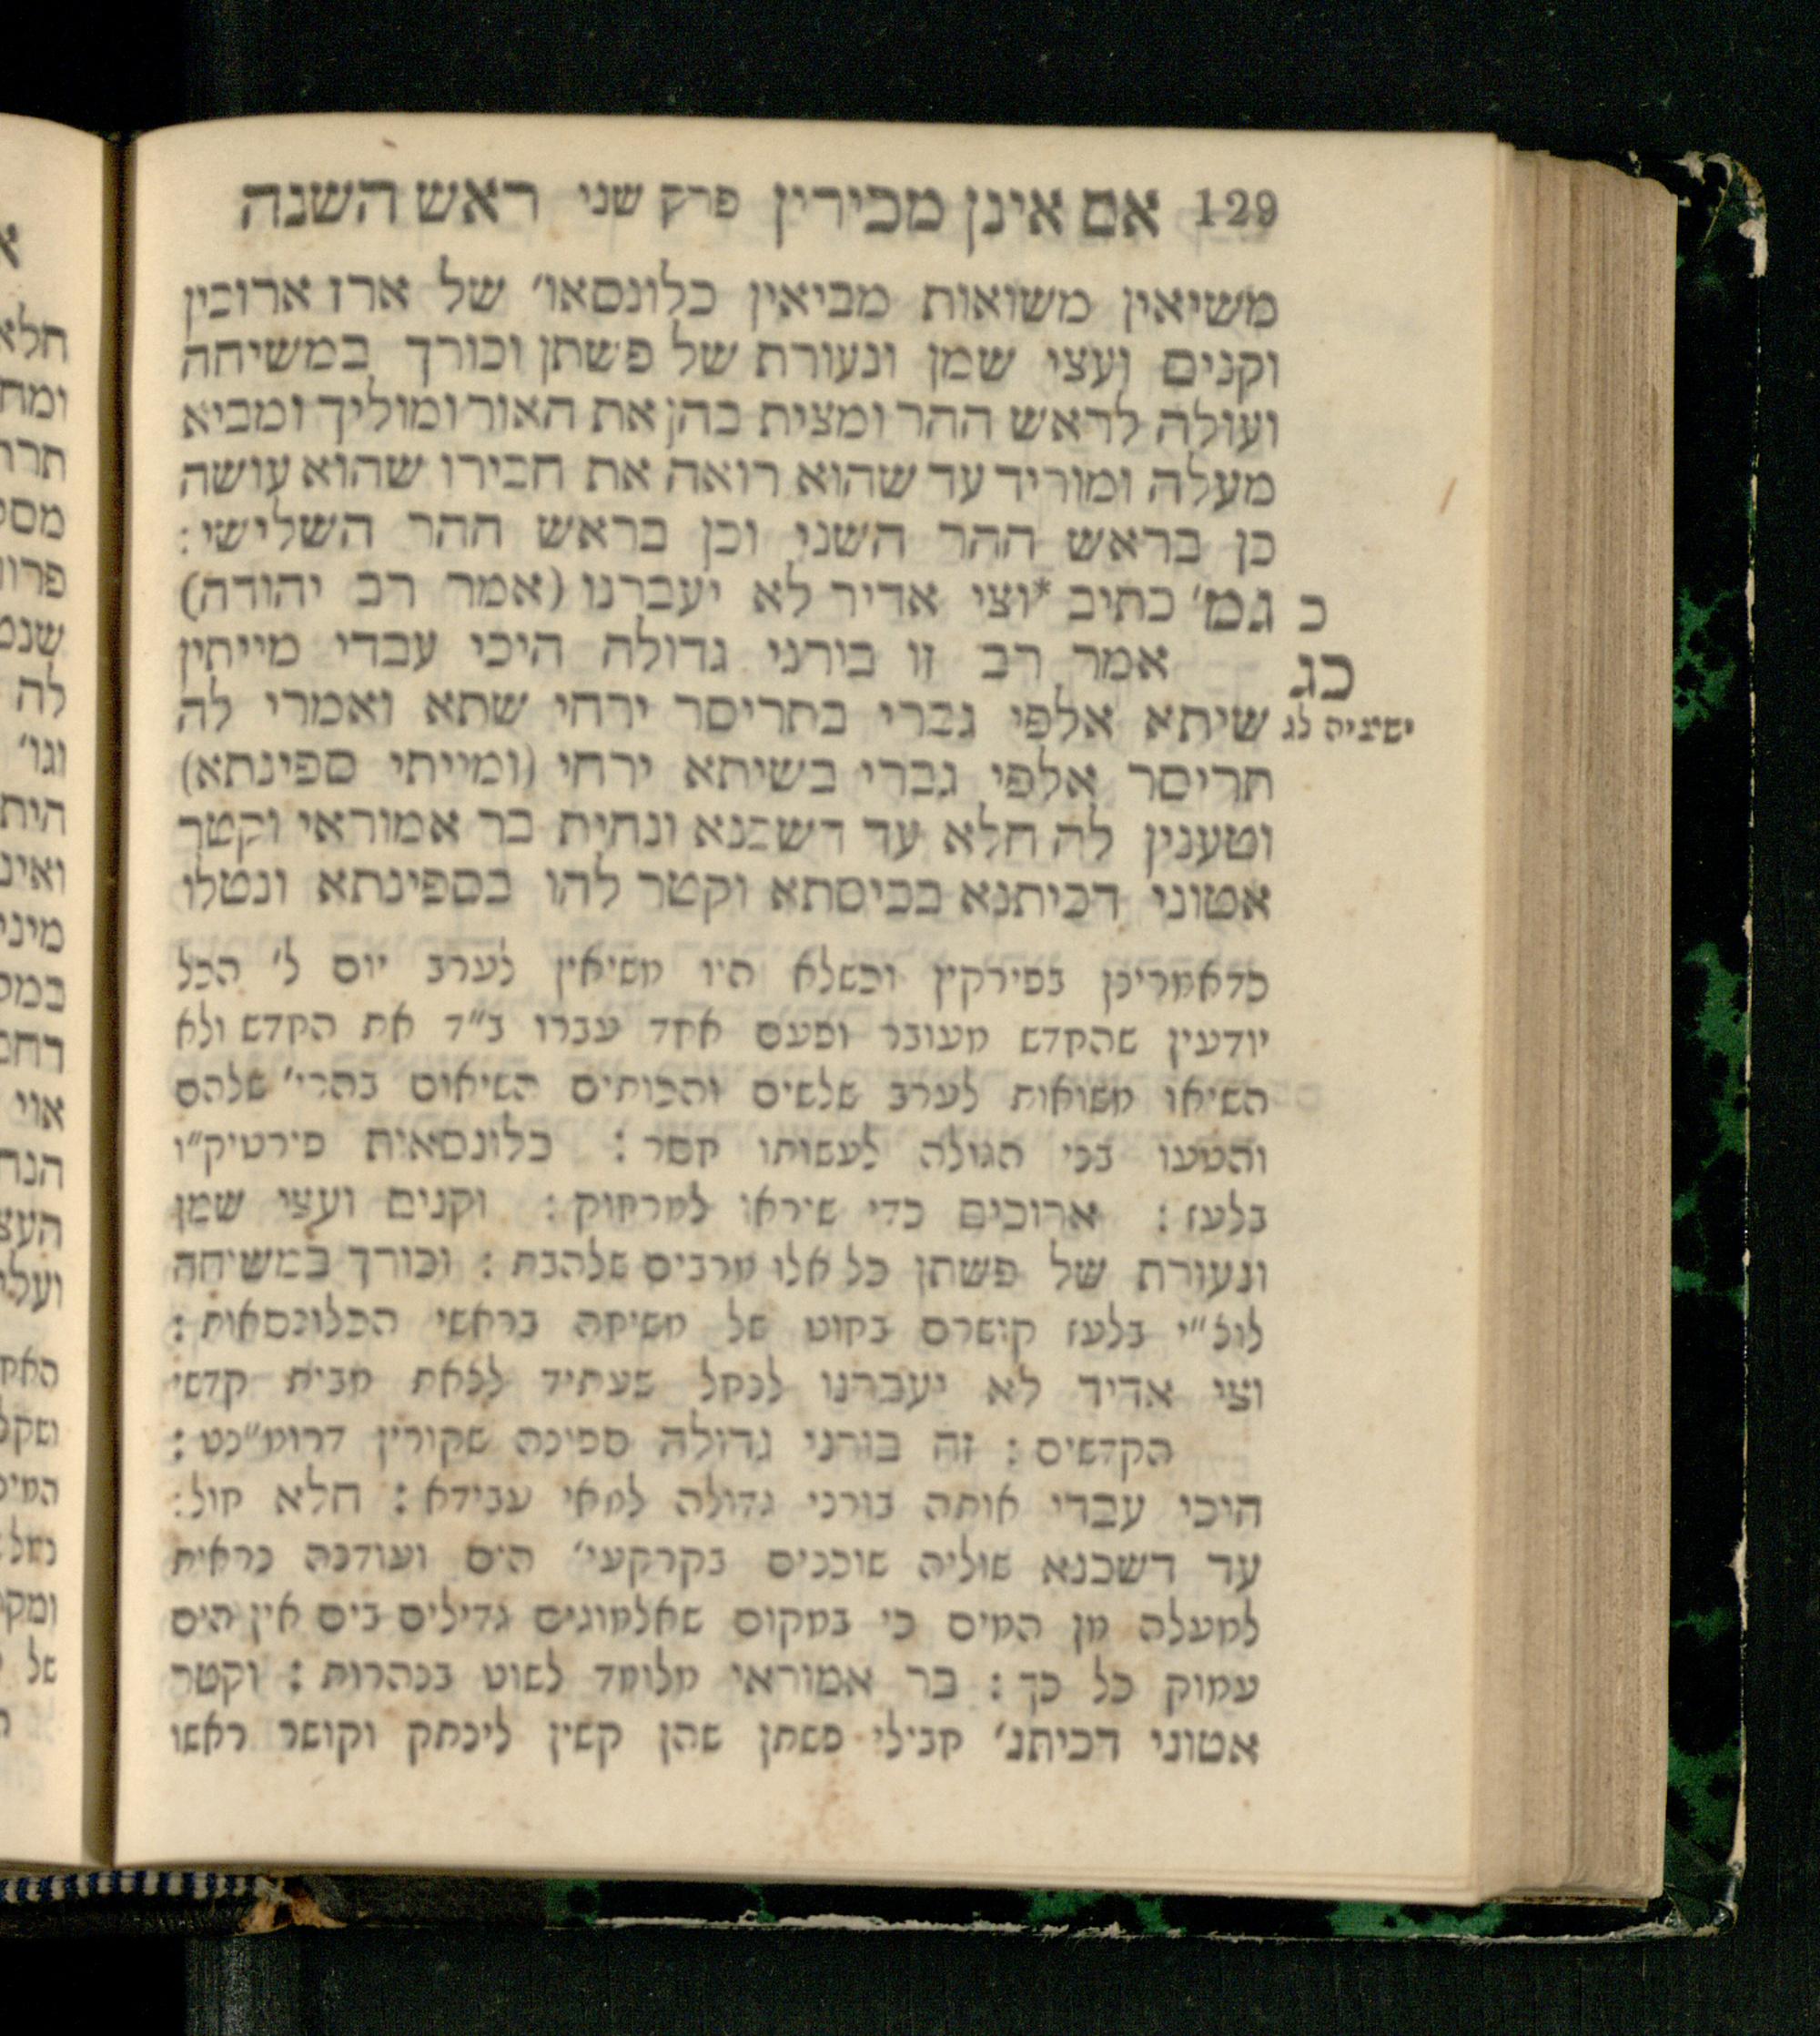 129 אם אינן מכירין פרק שני ראש השנה
משיאין משואות מביאין כלונסאו׳ של ארז ארוכין
וקנים ועצי שמן ונעורת של פשתן וכורך במשיחה
ועולה לראש ההר ומצית בהן את האור ומוליך ומביא
מעלה ומוריד עד שהוא רואה את חבירו שהוא עושה
כן בראש ההר השני וכן בראש ההר השלישי :
כ גמ׳ כתיב *וצי אדיר לא יעברנו (אמר רב יהודה)
כג אמר רב זו בורני גדולה היכי עבדי מייתין
ישעיה לג שיתא אלפי גברי בתריסר ירחי שתא ואמרי לה
תריסר אלפי גברי בשיתא ירחי (ומייתי ספינתא)
וטענין לה חלא עד דשכנא ונחית בר אמוראי וקטר
אטוני דכיתנא בכיסתא וקטר להו בספינתא ונטלו
כדאמרינן בפירקין וכשלא היו משיאין לערב יום ל׳ הכל
יודעין שהחדש מעובר ופעם אחד עברו ב״ד את החדש ולא
השיאו משואות לערב שלשים והכותים השיאום בהרי׳ שלהם
והטעו בני הגולה לעשותו חסר : כלונסאות פירטיק״ו
בלעז : ארוכים כדי שיראו למרחוק : וקנים ועצי שמן
ונעורת של פשתן כל אלו מרבים שלהבת : וכורך במשיחה
לול״י בלעז קושרם בחוט של משיחה בראשי הכלונסאות :
וצי אדיר לא יעברנו לנחל שעתיד לצאת מבית קדשי
הקדשים : זה בורני גדולה ספינה שקורין דרומ״נט :
היכי עבדי אותה בורני גדולה למאי עבידא : חלא חול :
עד דשכנא שוליה שוכנים בקרקעי׳ הים ועודנה נראית
למעלה מן המים כי במקום שאלמוגים גדילים בים אין הים
עמוק כל כך : בר אמוראי מלומד לשוט בנהרות : וקטר
אטוני דכיתנ׳ חבילי פשתן שהן קשין לינתק וקושר ראשו